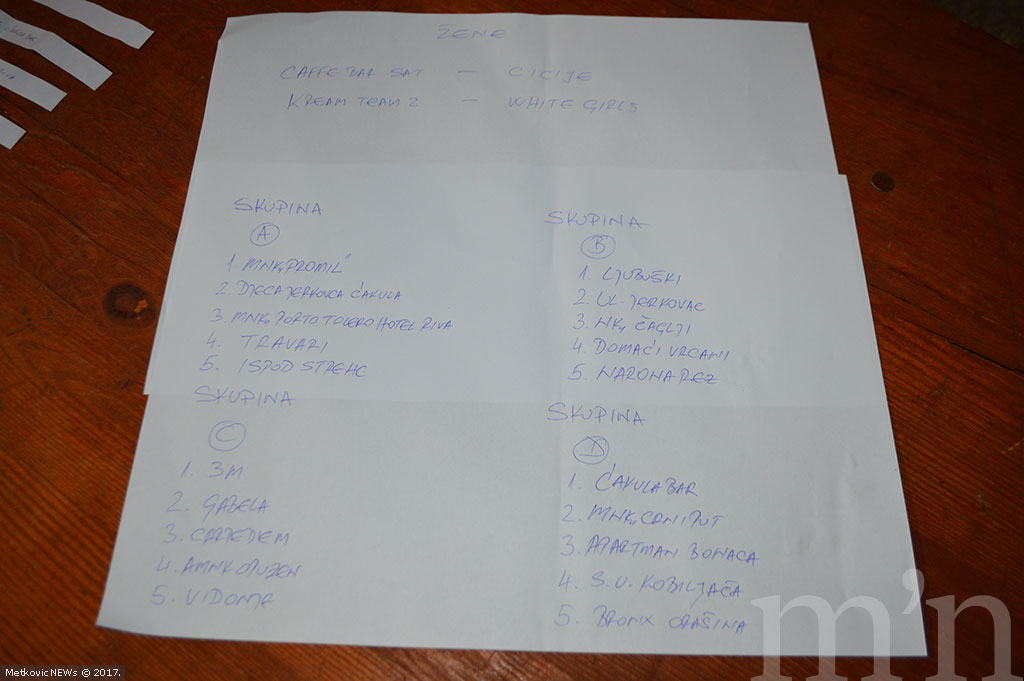 ŽENE
CAFFE BAR SAT — CICIJE
KREAM TEAM 2 — WHITE GIRLS
SKUPINA
A
1. MNK„PROMIL"
2. DJECA JERKOVCA ĆAKULA
3. MNK„PORTO TOLERO HOTEL RIVA
4. TRAVARI
5. ISPOD STREHE
SKUPINA
B
1. LJUBUŠKI
2. UL-JERKOVAC
3. NK„ ČAGLJI
4. DOMAĆI VRCANI
5. NARONA REZ
SKUPINA
C
1. 3M
2. GABELA
3. CARPEDIEM
4. AMNK OPUZEN
5. VIDONJE
SKUPINA
D
1. ĆAKULA BAR
2. MNK„CRNI PUT
3. APARTMAN BONACA
4. S.U. KOBILJAČA
5. BRONX ORAŠINA
m'n
MetkovicNEWs © 2017.